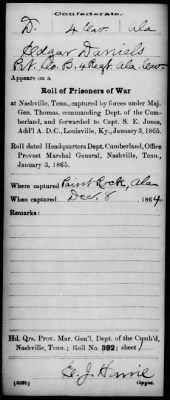 Confederate.
D. 4 Cav. Ala
Edgar Daniels
Pvt. Co. B, 4 Regt. Ala. Cav.
Appears on a
Roll of Prisoners of War
at Nashville, Tenn., captured by forces under Maj.
Gen. Thomas, commanding Dept. of the Cum-
berland, and forwarded to Capt. S. E. Jones,
Add'l A. D. C., Louisville, Ky., January 3, 1865.
Roll dated Headquarters Dept. Cumberland, Office
Provost Marshal General, Nashville, Tenn.,
January 3, 1865.
Where captured Paint Rock, Ala
When captured Dec. 8, 1864
Remarks:
Hd. Qrs. Prov. Mar. Gen'l, Dept. of the Cumb'd,
Nashville, Tenn.; Roll No. 392; sheet 1
Copyist.